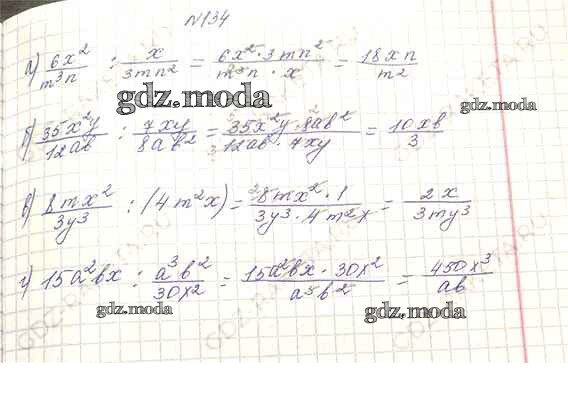 N134
а) 6x²/m³n : x/3mn² = 6x²·3mn²/m³n·x = 18xn/m²
gdz.moda
gdz.moda
б) 35x²y/12ab : 7xy/8ab² = 35x²y·8ab²/12ab·7xy = 10xb/3
в) 8mx²/3y³ : (4m²x) = 8mx²·1/3y³·4m²x = 2x/3my³
г) 15a²bx : a³b²/30x² = 15a²bx·30x²/a³b² = 450x³/ab
gdz.moda
gdz.moda